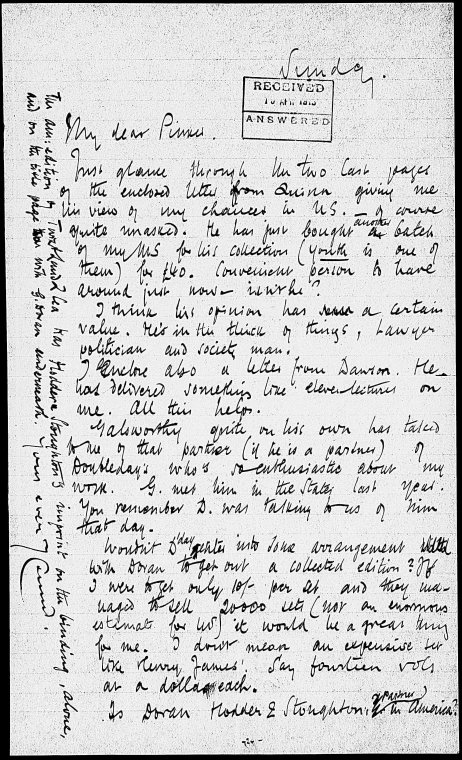 Sunday.
RECEIVED
10 APR. 1913
ANSWERED
My dear Pinker.
Just glance through the two last pages
of the enclosed letter from Quinn giving me
his view of my chances in U.S. – of course
quite unasked. He has just bought another batch
of my MS for his collection (Youth is one of
them) for £40. Convenient person to have
around just now – isn't he?
I think his opinion has a certain
value. He's in the thick of things, Lawyer
politician and society man.
I Enclose also a letter from Dawson. He
has delivered something like eleven lectures on
me. All this helps.
Galsworthy quite on his own has talked
to me of that partner (if he is a partner) of
Doubleday's who's so enthusiastic about my
work. G. met him in the States last year.
You remember D. was talking to us of him
that day.
Wouldn't D'day enter into some arrangement
with Doran to get out a collected edition? If
I were to get only 10/- per set and they ma-
naged to sell 20000 sets (not an enormous
estimate for US) it would be a great thing
for me. I don't mean an expensive set
like Henry James'. Say fourteen vols
at a dollar each.
Is Doran Hodder & Stoughton's partner in America?
The am: edition of Twixt Land & Sea has Hodder & Stoughton's imprint on the binding, alone,
and on the title page too with G. Doran underneath. Yours ever J Conrad.